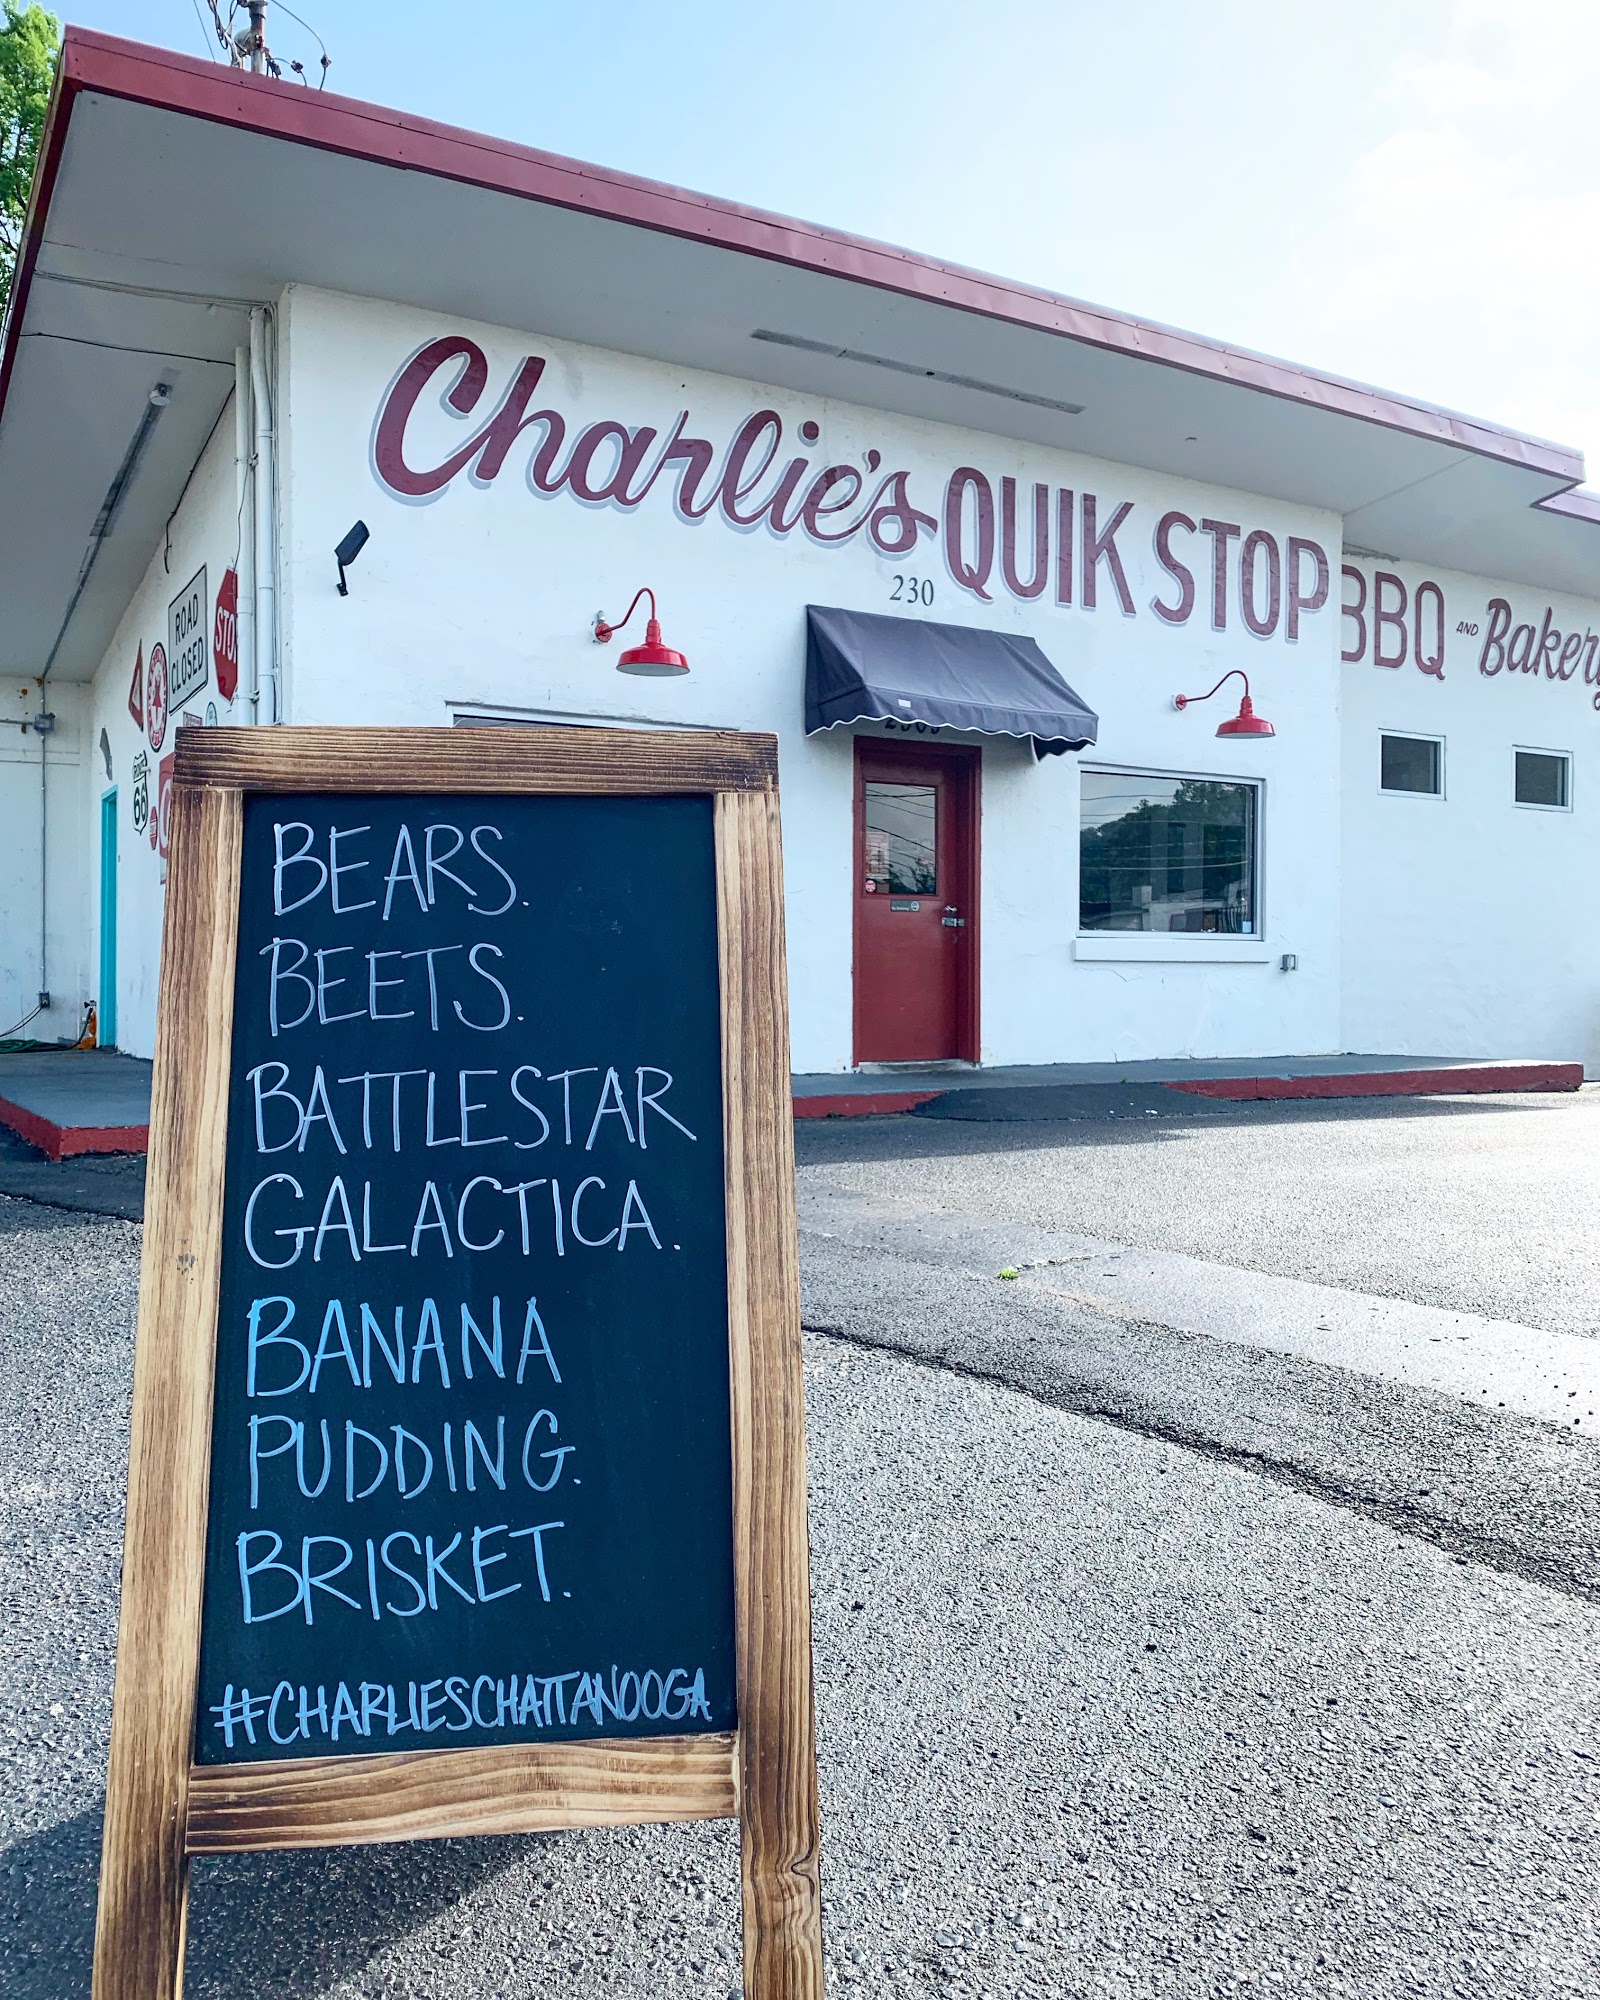 Charlie's QUIK STOP
BBQ AND Bakery
230
ROAD
CLOSED
STOP
ROUTE
66
BEARS.
BEETS.
BATTLESTAR
GALACTICA.
BANANA
PUDDING.
BRISKET.
#CHARLIESCHATTANOOGA